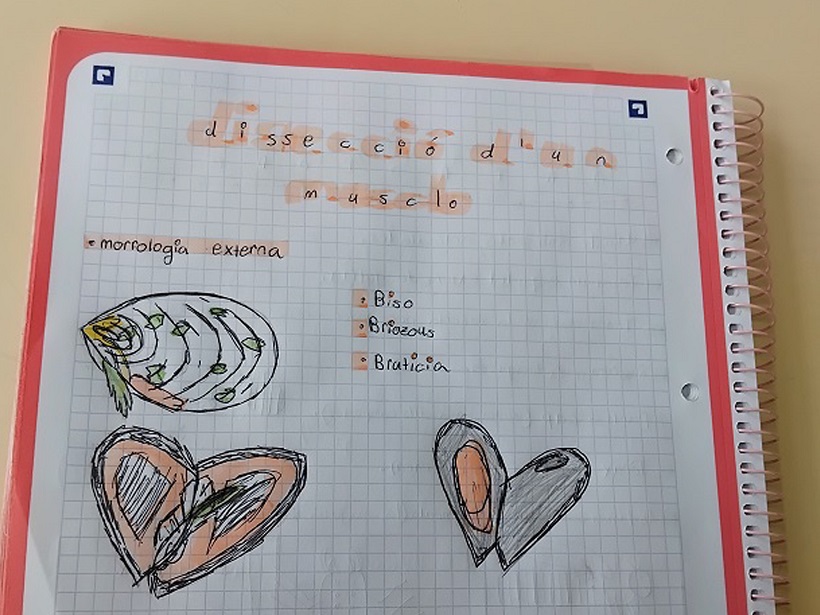 dissecció d'un
musclo
• morfologia externa
• Biso
• Briozous
• Braticia